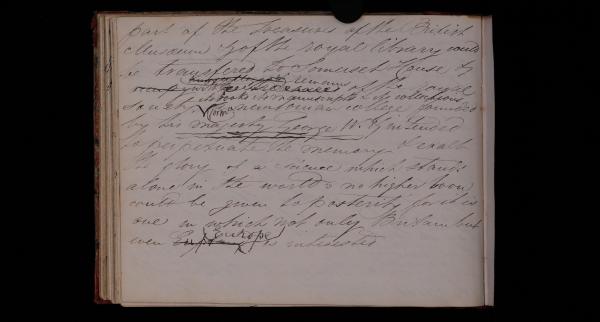 part of the treasures of the British
Museum & of the royal library could
be transferred to Somerset House &
remains of the royal
Society its books its manuscripts & its collections
(form) a newtonian college founded
by his majesty George IV. & intended
to perpetuate the memory & exalt
the glory of a science which stands
alone in the world & no higher boon
could be given to posterity for it is
one in which not only Britain but
even England (Europe) is interested